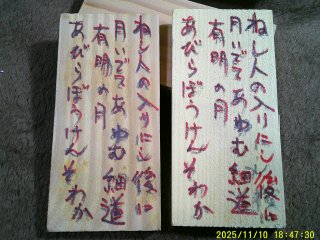 ねし人の入りにし後に
月いでてあわむ細道
有明の月
あびらぼうけんそわか
ねし人の入りにし後に
月いでてあわむ細道
有明の月
あびらぼうけんそわか
2025/11/10 18:47:30